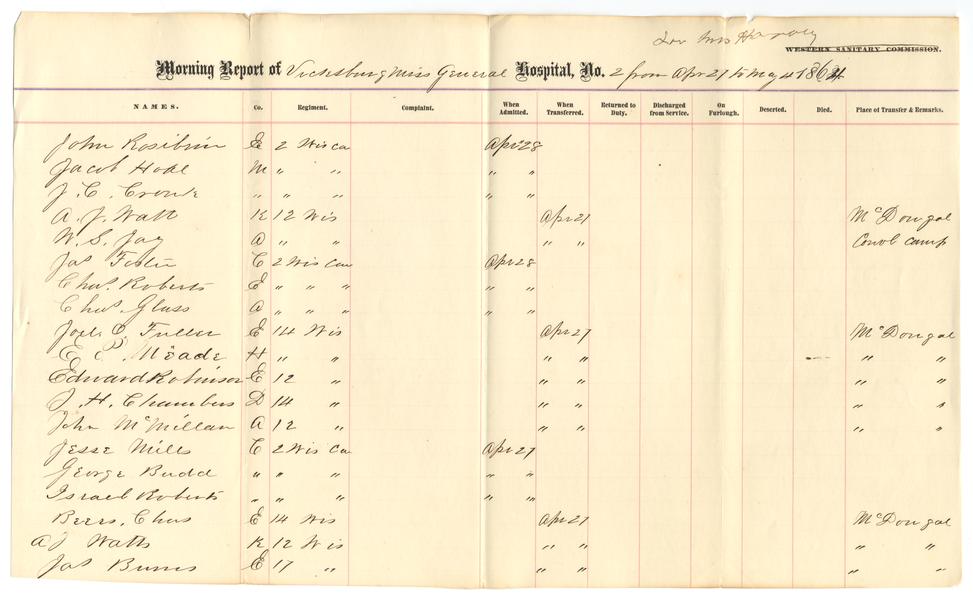 For Mrs Harvey
WESTERN SANITARY COMMISSION.
Morning Report of Vicksburg Miss General Hospital, No. 2 from Apr 27 to May 4 1864.
NAMES. Co. Regiment. Complaint. When Admitted. When Transferred. Returned to Duty. Discharged from Service. On Furlough. Deserted. Died. Place of Transfer & Remarks.
John E 2 Wis Ca Apr 28
Jacob M " " " "
J. C. " " " " "
A. J. Watt K 12 Wis Apr 27 McDougal
W. S. Jay A " " " " Conv camp
Jas C 2 Wis Cav Apr 28
Chas. Roberts E " " " " "
Chas. Glass A " " " " "
Joel C. Fuller E 14 Wis Apr 27 McDougal
E. B. Meade H " " " " " "
Edward Robinson E 12 " " " " "
J. H. Chambers D 14 " " " " "
John McMillan A 12 " " " " "
Jesse Mills C 2 Wis Ca Apr 27
George Budd " " " " "
Israel Roberts " " " " "
Beers, Chas E 14 Wis Apr 27 McDougal
A J Watts K 12 Wis " " " "
Jas Burns E 17 " " " " "